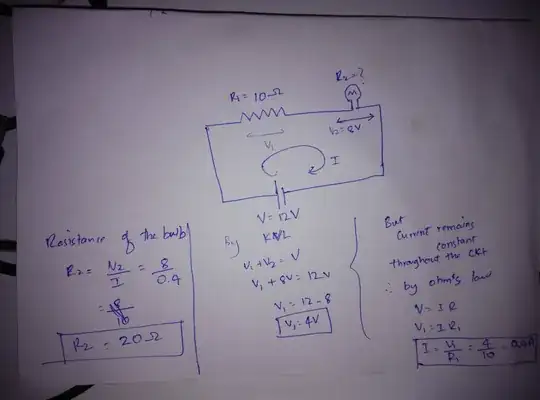 R₁ = 10Ω
R₂ = ?
V₁
V₂ = 8V
I
V = 12V
Resistance of the bulb
R₂ = V₂/I = 8/0.4
R₂ = 20Ω
By KVL
V₁ + V₂ = V
V₁ + 8V = 12V
V₁ = 12 - 8
V₁ = 4V
But
Current remains
constant
throughout the CKt
∴ by ohm's law
V = IR
V₁ = IR₁
I = V₁/R₁ = 4/10 = 0.4A